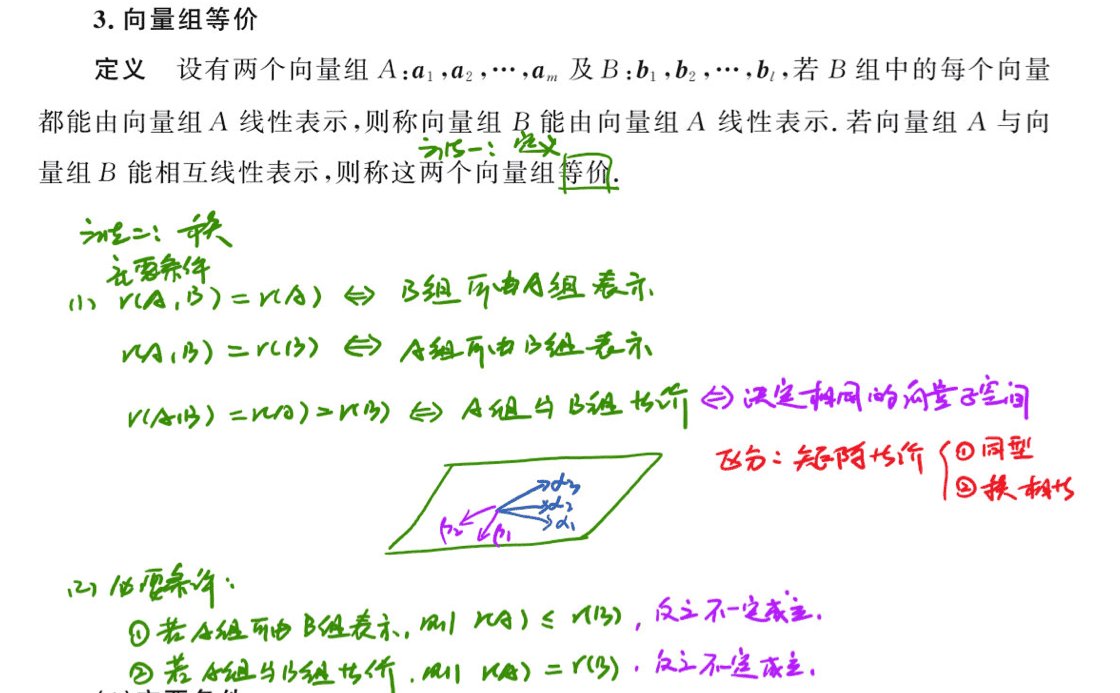 3. 向量组等价
定义 设有两个向量组 A:a₁,a₂,⋯,aₘ 及 B:b₁,b₂,⋯,bₗ,若 B 组中的每个向量
都能由向量组 A 线性表示,则称向量组 B 能由向量组 A 线性表示.若向量组 A 与向
方法一：定义
量组 B 能相互线性表示,则称这两个向量组等价.
方法二：秩
充要条件
(1) r(A,B)=r(A) ⇔ B组可由A组表示
r(A,B)=r(B) ⇔ A组可由B组表示
r(A,B)=r(A)=r(B) ⇔ A组与B组等价 ⇔ 决定相同的向量子空间
区分：矩阵等价 { ①同型
②秩相等
α₃
α₂
α₁
β₂ β₁
(2) 必要条件：
①若A组可由B组表示,则 r(A)≤r(B),反之不一定成立.
②若A组与B组等价,则 r(A)=r(B).反之不一定成立.